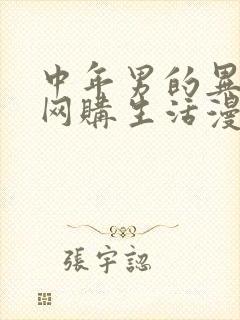 中年男的異
网購生活漫
張宇認